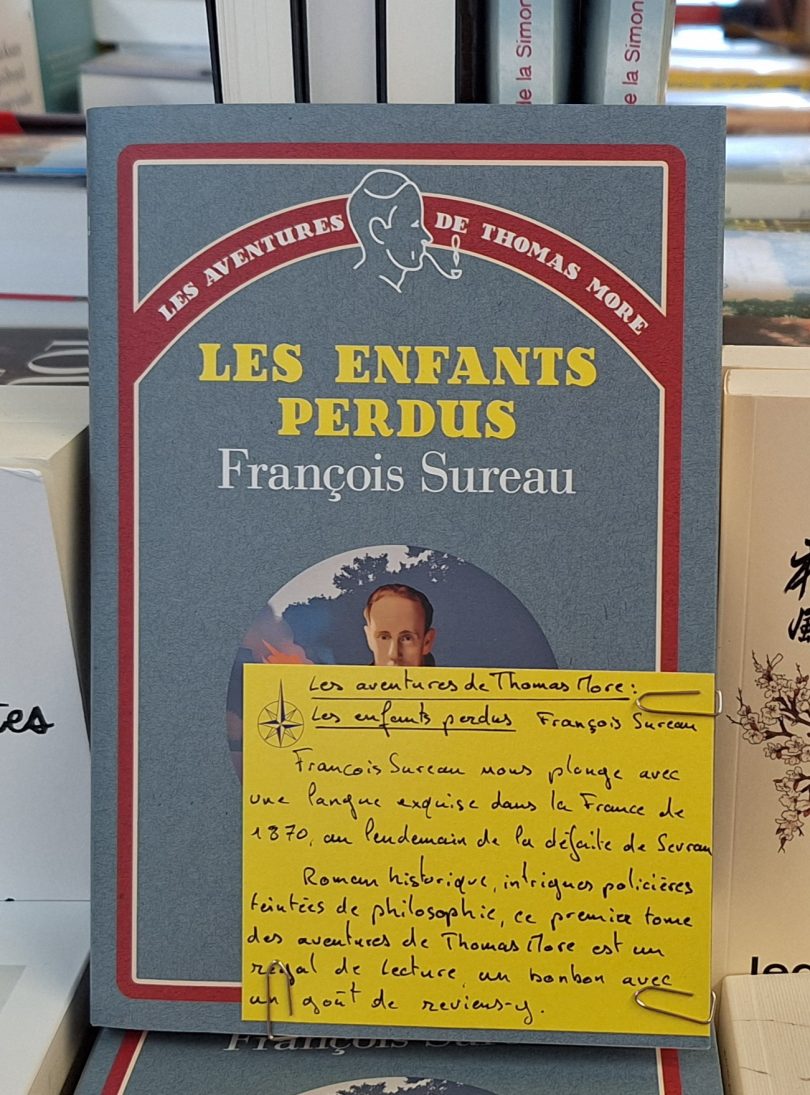 de la Simon
de la Simon
LES AVENTURES DE THOMAS MORE
LES ENFANTS
PERDUS
François Sureau
Les aventures de Thomas More :
Les enfants perdus François Sureau
Francois Sureau nous plonge avec
une langue exquise dans la France de
1870, au lendemain de la défaite de
Roman historique, intrigues policières
teintées de philosophie, ce premier tome
des aventures de Thomas More est un
régal de lecture, un bonbon avec
un goût de reviens-y.
tes
François Sur